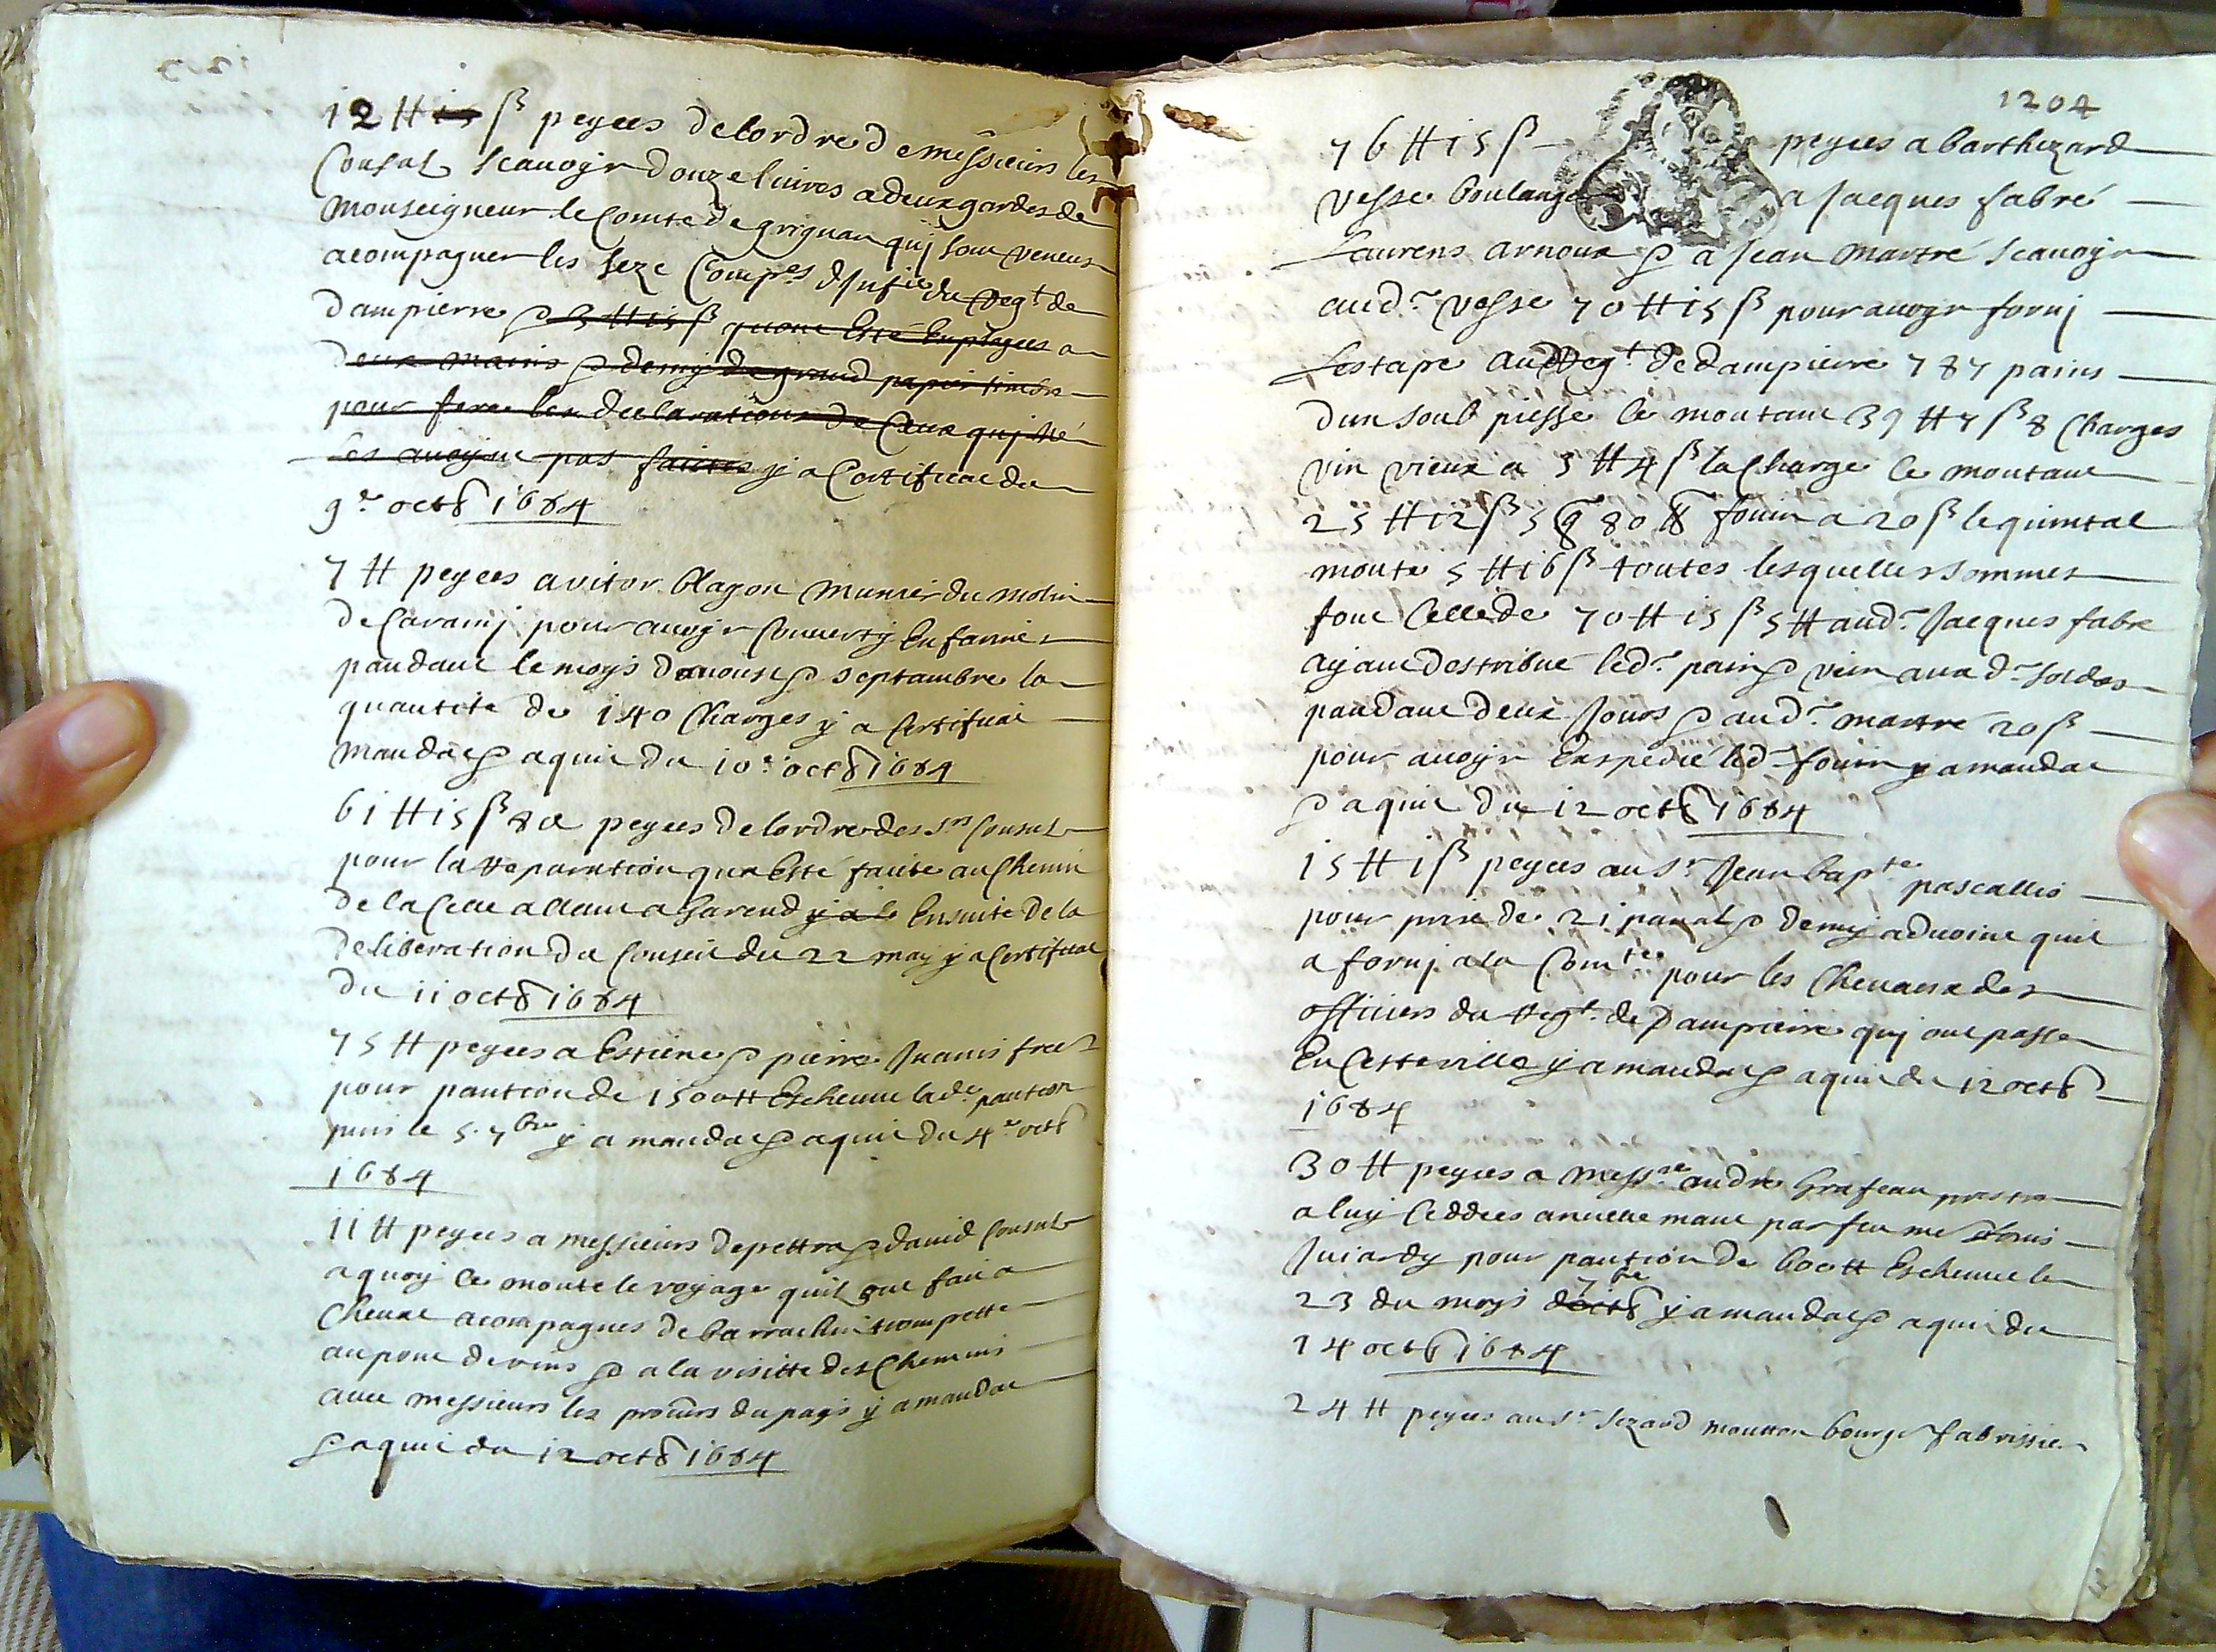 12 ₶ 15 ß peyees de lordre de messieurs les
Consuls scauoyr douze liures a deux gardes de
Monseigneur le Comte de grignan quj sont veneus
acompagner les seze Comp^es dInf^ie du Reg^t de
dampierre & 3 ₶ 15 ß quont esté enployees a
deux mains & demy de grand papier timbre
pour fere les declarations de Ceux quj ne
les auoynt pas faites y a Certificat du
9^e octb 1684
7 ₶ peyees a vitor blagon munier du molin
de Caramj pour auoyr Conuerty en farine
pandant le moys daoust & septambre la
quantité de 140 Charges y a Certificat
mandat & aquit du 10^e octb 1684
61 ₶ 15 ß 8 d peyees de lordre des s^rs Consuls
pour la Reparation qua esté faite au Chemin
de la allant a y a le ensuite de la
deliberation du Conseil du 22 may y a Certificat
du 11 octb 1684
75 ₶ peyees a Estiene & pierre Juanis freres
pour pantion de 1500 ₶ Escheue lad^e pantion
puis le 5 7^bre y a mandat & aquit du 4^e octb
1684
11 ₶ peyees a messieurs depettra & dauid Consuls
a quoy ce monte le voyage quil ont fait a
Cheual acompagnes de trompette
au pont de vins & a la visitte des Chemins
auec messieurs les procurs du pays y a mandat
& aquit du 12 octb 1684
1204
76 ₶ 15 ß peyees a barthezard
vesse boulang a Jacques fabre
Laurens arnoux & a Jean martre scauoyr
aud^t vesse 70 ₶ 15 ß pour auoyr fornj
Lestape aud Reg^t de dampierre 787 pains
dun soul piesse ce montant 39 ₶ 7 ß 8 Charges
vin vieux a 3 ₶ 4 ß la Charge ce montant
25 ₶ 12 ß 5 q 80 ₶ fouin a 20 ß le quintal
monte 5 ₶ 16 ß toutes lesquelles sommes
font Celle de 70 ₶ 15 ß 5 ₶ aud^t Jacques fabre
ayant destribué led^t pain & vin aux d^s soldas
pandant deux Jours & aud^t martre 20 ß
pour auoyr Expedié led^t fouin y a mandat
& aquit du 12 octb 1684
15 ₶ 1 ß peyees au s^r Jean bap^te pascallis
pour prix de 21 panal & demy aduoine quil
a fornj a la Com^te pour les Cheuaux des
officiers du Reg^t de Dampierre quj ont passe
en Cette ville y a mandat & aquit du 12 octb
1684
30 ₶ peyees a mess^re andre prestre
a luy ceddees anuellemant par feu me
pour pantion de 600 ₶ Escheue le
23 du moys doctb 7^bre y a mandat & aquit du
14 octb 1684
24 ₶ peyees au s^r moutton bourg^s fabrissien